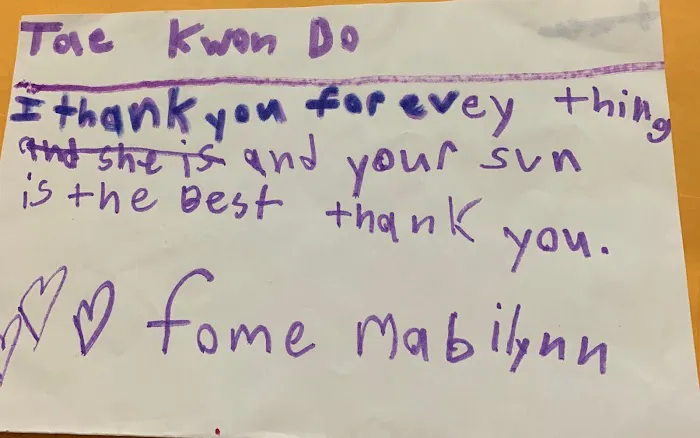 Tae Kwon Do
I thank you for evey thing
and she is and your sun
is the Best thank you.
fome Mabilynn